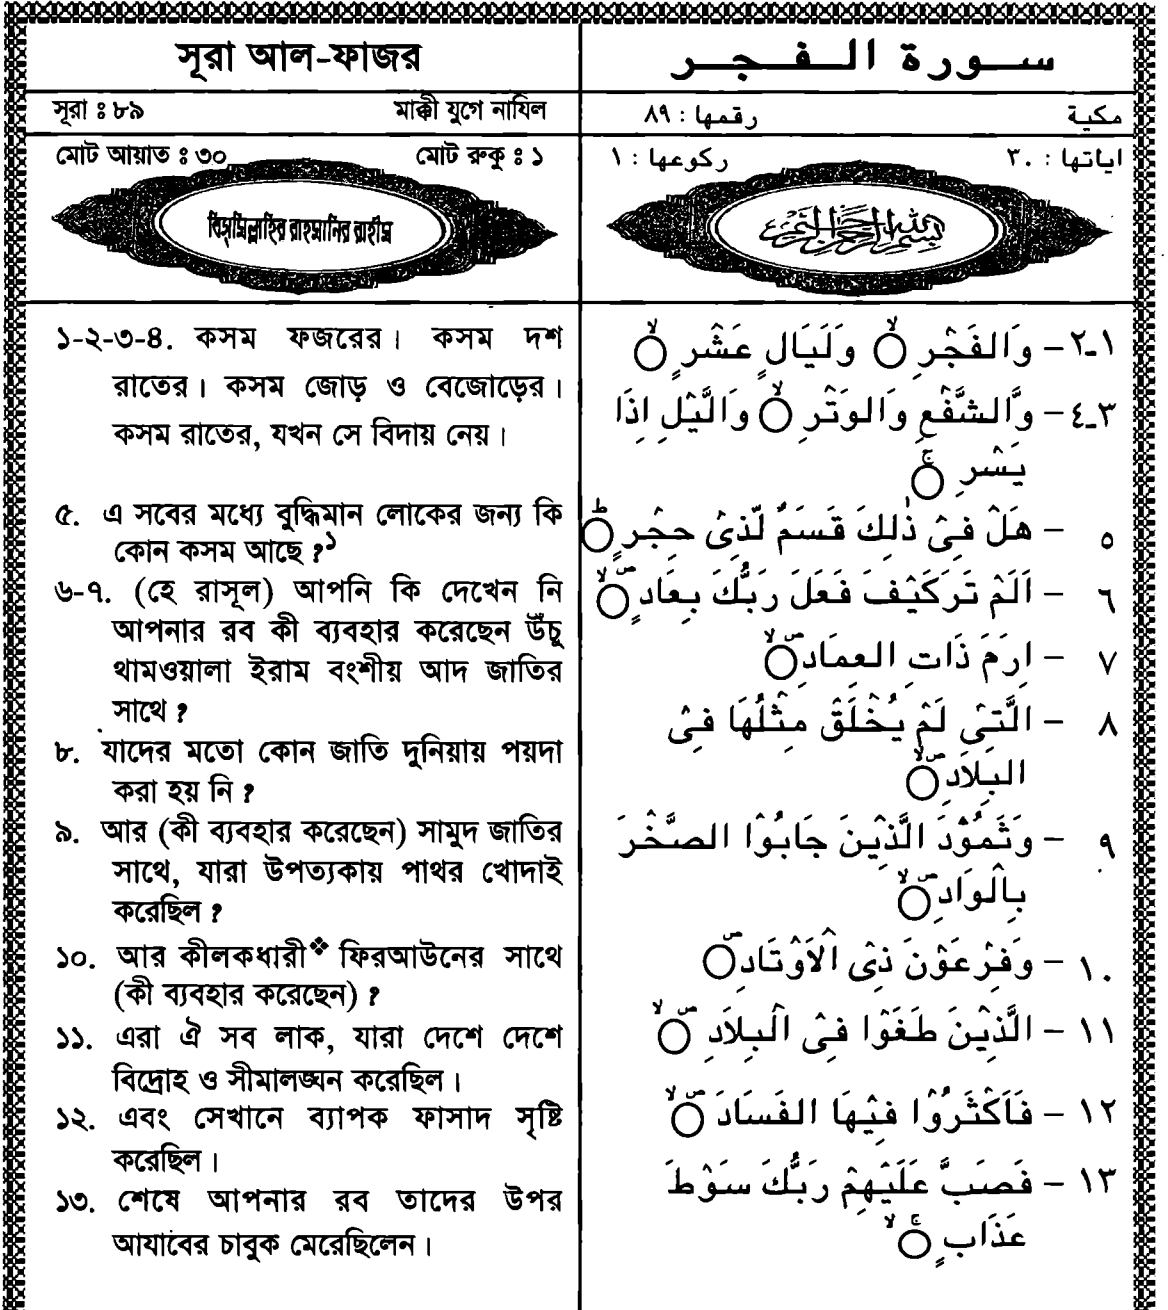 সূরা আল-ফাজর
সূরা ঃ ৮৯ মাক্কী যুগে নাযিল
মোট আয়াত ঃ ৩০ মোট রুকু ঃ ১
বিস্‌মিল্লাহির রাহমানির রাহীম
১-২-৩-৪. কসম ফজরের। কসম দশ
রাতের। কসম জোড় ও বেজোড়ের।
কসম রাতের, যখন সে বিদায় নেয়।
৫. এ সবের মধ্যে বুদ্ধিমান লোকের জন্য কি
কোন কসম আছে ?১
৬-৭. (হে রাসূল) আপনি কি দেখেন নি
আপনার রব কী ব্যবহার করেছেন উঁচু
থামওয়ালা ইরাম বংশীয় আদ জাতির
সাথে ?
৮. যাদের মতো কোন জাতি দুনিয়ায় পয়দা
করা হয় নি ?
৯. আর (কী ব্যবহার করেছেন) সামুদ জাতির
সাথে, যারা উপত্যকায় পাথর খোদাই
করেছিল ?
১০. আর কীলকধারী❖ ফিরআউনের সাথে
(কী ব্যবহার করেছেন) ?
১১. এরা ঐ সব লাক, যারা দেশে দেশে
বিদ্রোহ ও সীমালঙ্ঘন করেছিল।
১২. এবং সেখানে ব্যাপক ফাসাদ সৃষ্টি
করেছিল।
১৩. শেষে আপনার রব তাদের উপর
আযাবের চাবুক মেরেছিলেন।
سورة الفجر
مكية رقمها : ٨٩
اياتها : ٣٠ ركوعها : ١
بسم الله الرحمن الرحيم
١-٢ – وَالفَجْرِ ۙ وَلَيَالٍ عَشْرٍ ۙ
٣-٤ – وَّالشَّفْعِ وَالوَتْرِ ۙ وَالَّيْلِ اِذَا
يَسْرِ ۚ
٥ – هَلْ فِىْ ذٰلِكَ قَسَمٌ لِّذِىْ حِجْرٍ ؕ
٦ – اَلَمْ تَرَكَيْفَ فَعَلَ رَبُّكَ بِعَادٍ ۙ
٧ – اِرَمَ ذَاتِ العِمَادِ ۙ
٨ – الَّتِىْ لَمْ يُخْلَقْ مِثْلُهَا فِىْ
البِلاَدِ ۙ
٩ – وَثَمُوْدَ الَّذِيْنَ جَابُوْا الصَّخْرَ
بِالْوَادِ ۙ
١٠ – وَفِرْعَوْنَ ذِى الْاَوْتَادِ
١١ – الَّذِيْنَ طَغَوْا فِىْ الْبِلاَدِ ۙ
١٢ – فَاَكْثَرُوْا فِيْهَا الفَسَادَ ۙ
١٣ – فَصَبَّ عَلَيْهِمْ رَبُّكَ سَوْطَ
عَذَابٍ ۚ